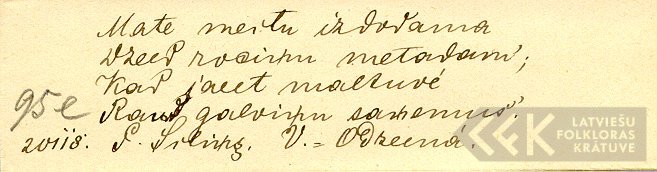 Mate meitu izdodama
Dzeed rocinu metadam;
Kad jaeet maltuvé
Raud galvinu sanemus.
95e
20118. P. Silinz. V.=Odzeená.
LATVIEŠU
FOLKLORAS
KRĀTUVE